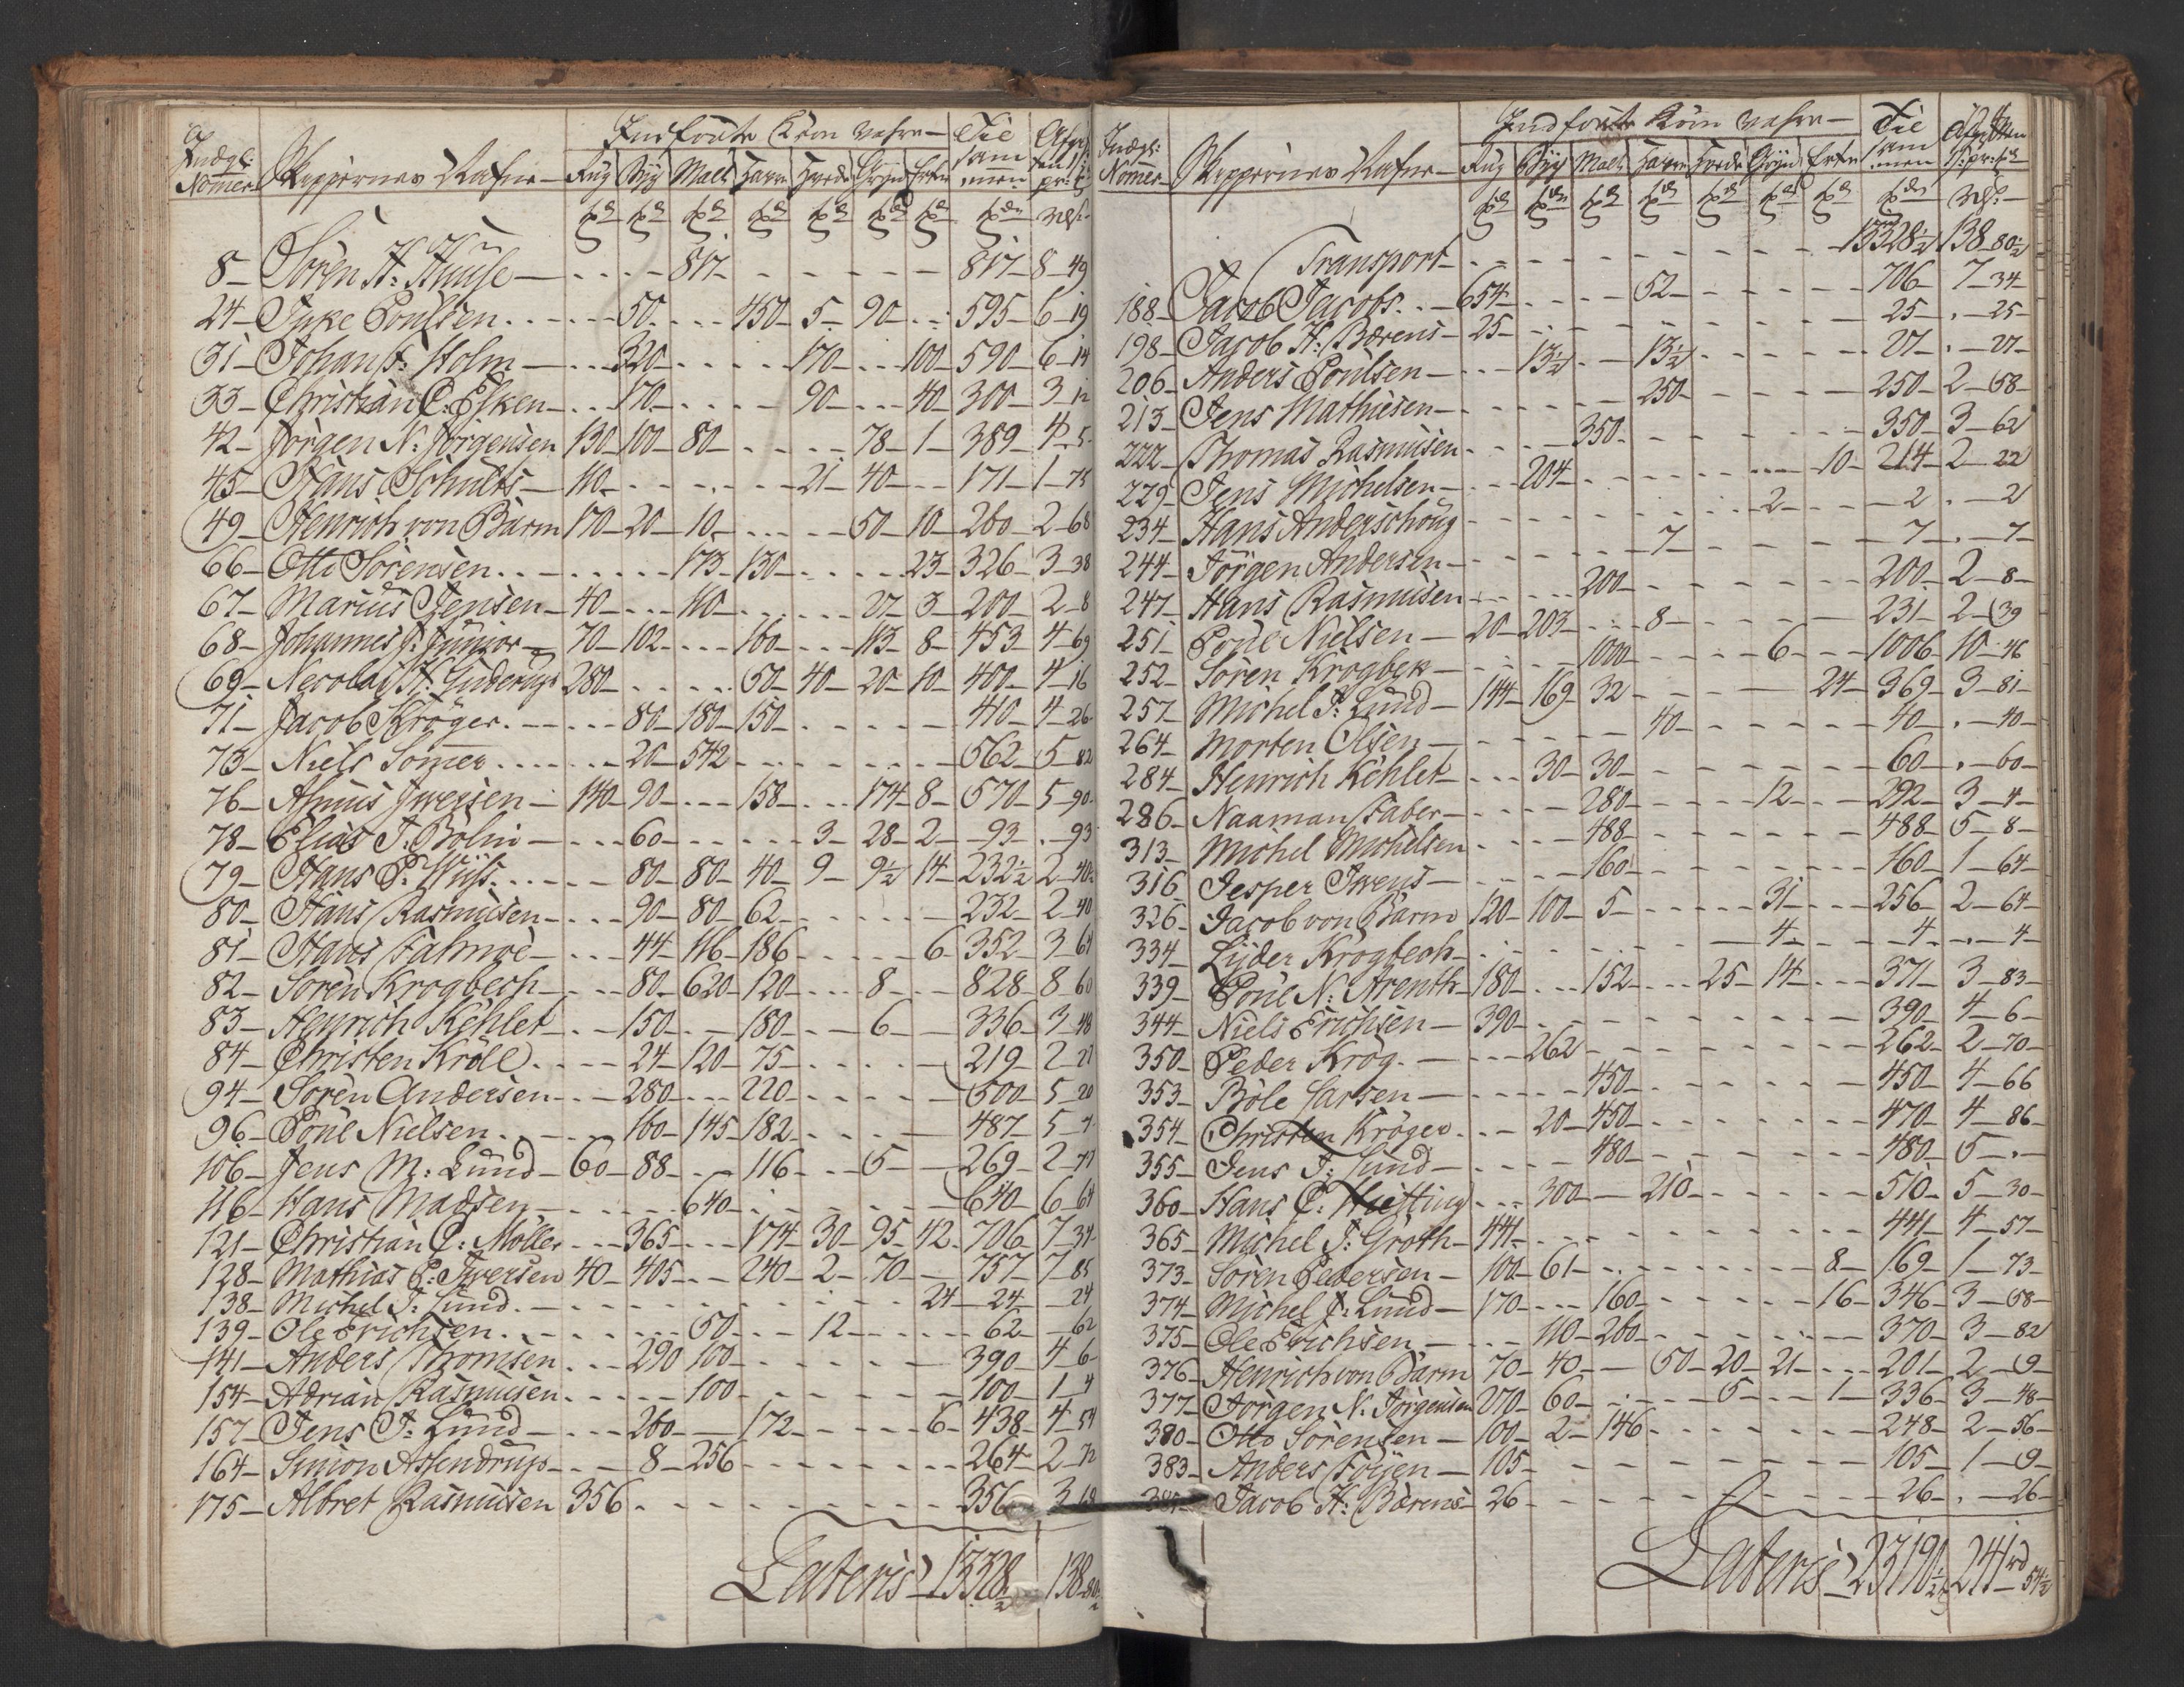 Indførte Korn Vahre Til sam men
Indgl: Nomer Skippernes Nafne Rug Byg Malt Havre Hvede Gryn Erter
8 Søren H: Huuse 817 817 8 49
24 Inke Poulsen 50 450 5 90 595 6 19
31 Johan F: Holm 320 170 100 590 6 14
33 Christian C: Esken 170 90 40 300 3 12
42 Jørgen N: Jørgensen 130 100 80 78 1 389 4 5
45 Hans Schults 110 21 40 171 1 75
49 Henrich von Barm 170 20 10 50 10 260 2 68
66 Otto Sørensen 173 130 23 326 3 38
67 Marius Jensen 40 110 27 3 200 2 8
68 Johannes J: Junior 70 102 160 113 8 453 4 69
69 Necolai H: Guderup 280 50 40 20 10 400 4 16
71 Jacob Krøger 80 180 150 410 4 26
73 Niels Somer 20 542 562 5 82
76 Asmus Jwersen 140 90 158 174 8 570 5 90
78 Elias J: Bolm 60 3 28 2 93 . 93
79 Hans P: Wiis 80 80 40 9 9½ 14 232½ 2 40½
80 Hans Rasmusen 90 80 62 232 2 40
81 Hans Falmøe 44 116 186 6 352 3 64
82 Søren Krogbech 80 620 120 8 828 8 60
83 Henrich Kehlet 150 180 6 336 3 48
84 Christen Krøll 24 120 75 219 2 27
94 Søren Andersen 280 220 500 5 20
96 Poul Nielsen 160 145 182 487 5 7
106 Jens M: Lund 60 88 116 5 269 2 77
116 Hans Madsen 640 640 6 64
121 Christian C: Møller 365 174 30 95 42 706 7 34
128 Mathias P: Jwersen 40 405 240 2 70 757 7 85
138 Michel J: Lund 24 24 24
139 Ole Erichsen 50 12 62 62
141 Anders Thomsen 290 100 390 4 6
154 Adrian Rasmusen 100 100 1 4
157 Jens J: Lund 260 172 6 438 4 54
164 Simon Assendrup 8 256 264 2 72
175 Albret Rasmusen 356 356 3
Lateris 13328½ 138 80½
Indførte Korn Vahre Til sam men Afgiften
Indgl: Nomer Skippernes Nafne Rug Byg Malt Havre Hvede Gryn Erter
Transport 13328½ 138 80½
188 Jacob Jacobs 654 52 706 7 34
198 Jacob H: Bærens 25 25 . 25
206 Anders Poulsen 13½ 13½ 27 . 27
213 Jens Mathiesen 250 250 2 58
222 Thomas Rasmusen 350 350 3 62
229 Jens Michelsen 204 10 214 2 22
234 Hans Anderschoug 2 2 . 2
244 Jörgen Andersen 7 7 . 7
247 Hans Rasmusen 200 200 2 8
251 Poul Nielsen 20 203 8 231 2 39
252 Søren Krogbek 1000 6 1006 10 46
257 Michel J: Lund 144 169 32 24 369 3 81
264 Morten Olsen 40 40 . 40
284 Henrich Kehlet 30 30 60 . 60
286 Naaman Faber 280 12 292 3 4
313 Michel Michelsen 488 488 5 8
316 Jesper Jwens 160 160 1 64
326 Jacob von Barm 120 100 5 31 256 2 64
334 Lyder Krogbech 4 4 . 4
339 Poul N: Arenth 180 152 25 14 371 3 83
344 Niels Erichsen 390 390 4 6
350 Peder Krog 262 262 2 70
353 Bole Larsen 450 450 4 66
354 Christen Krøger 20 450 470 4 86
355 Jens J: Lund 480 480 5 .
360 Hans C: Hutting 300 210 510 5 30
365 Michel J: Groth 441 441 4 57
373 Søren Pedersen 100 61 8 169 1 73
374 Michel J: Lund 170 160 16 346 3 58
375 Ole Erichsen 110 260 370 3 82
376 Henrich von Barm 70 40 50 20 21 201 2 9
377 Jørgen N: Jørgensen 270 60 5 1 336 3 48
380 Otto Sørensen 100 2 146 248 2 56
383 Anders Foyen 105 105 1 9
Jacob H: Bærens 26 26 . 26
Lateris 23190½ 241 rd 54½